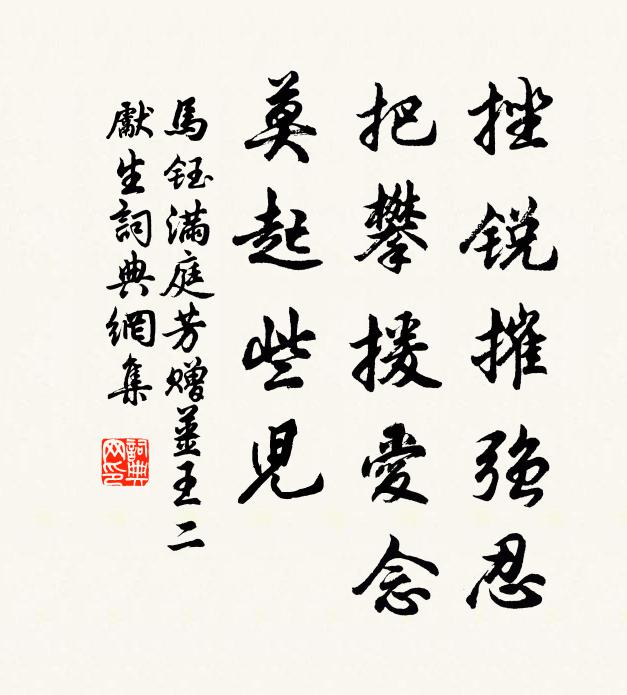 挫銳摧強忍
把攀援愛念
莫起些兒
馬鈺滿庭芳贈薑王二
獻生詞典網集
詞典網印